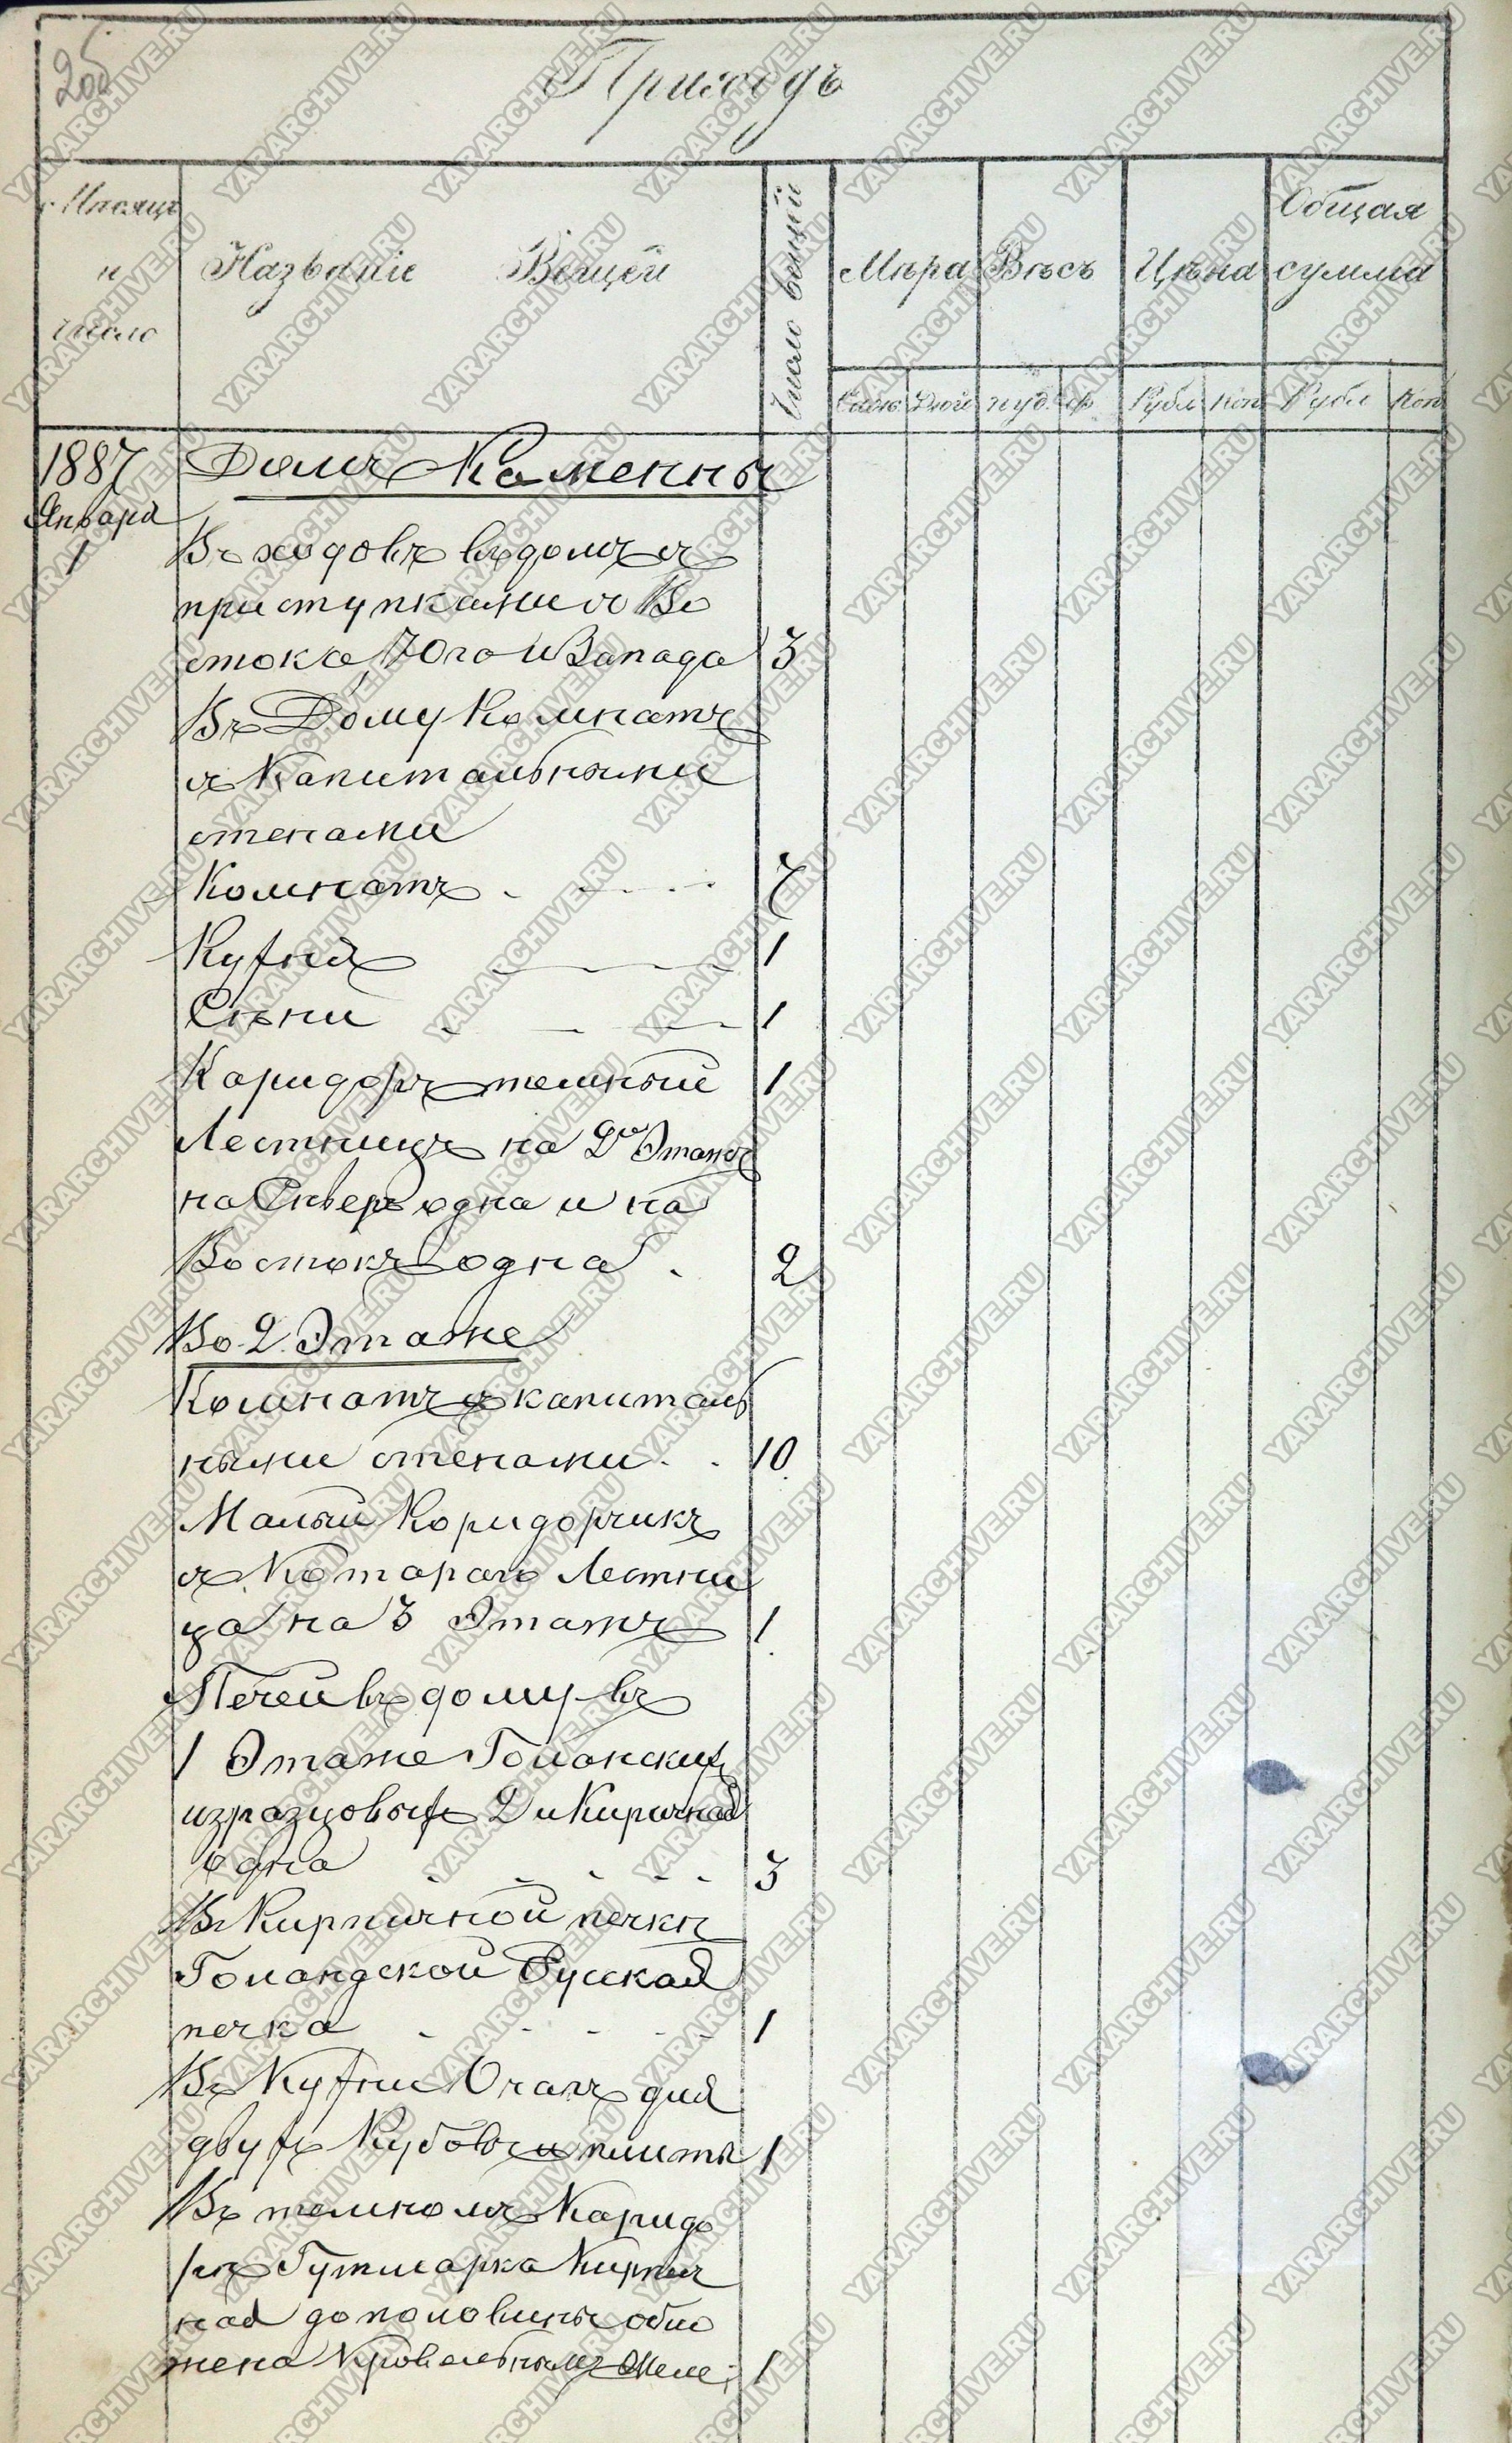 2об
Приходъ
Мѣсяцъ и число
Названіе Вещей
Число вещей
Мѣра Вѣсъ Цѣна Общая сумма
Саж Дюй пуд ф Рубл коп Рубл Коп
1887 Домъ Каменны
Января
1 Въ ходовъ въ домъ съ
приступками съ Во
стока, Юго и Запада 3
Въ Дому Комнатъ
съ Капитальными
стенами
Комнатъ 7
Куфня 1
Сѣни 1
Каридоръ темный 1
Лестницъ на 2й Этажъ
на Сѣверъ одна и на
Востокъ одна 2
Во 2 Этаже
Комнатъ съ капиталь
ными стенами 10
Малый Коридорчикъ
съ Котараго Лестни
ца на 3 Этажъ 1
Печей въ дому въ
1 Этаже Голанскихъ
изразцовыхъ 2 и Кирпичная
одна 3
Въ Кирпичной печкѣ
Голандской Руская
печка 1
Въ Куфни Очагъ для
двухъ Кубовъ и плиты 1
Въ темномъ Каридо
рѣ Гутмарка Кирпич
ная до половины обло
жена Кровельнымъ Желе; 1
YARARCHIVE.RU